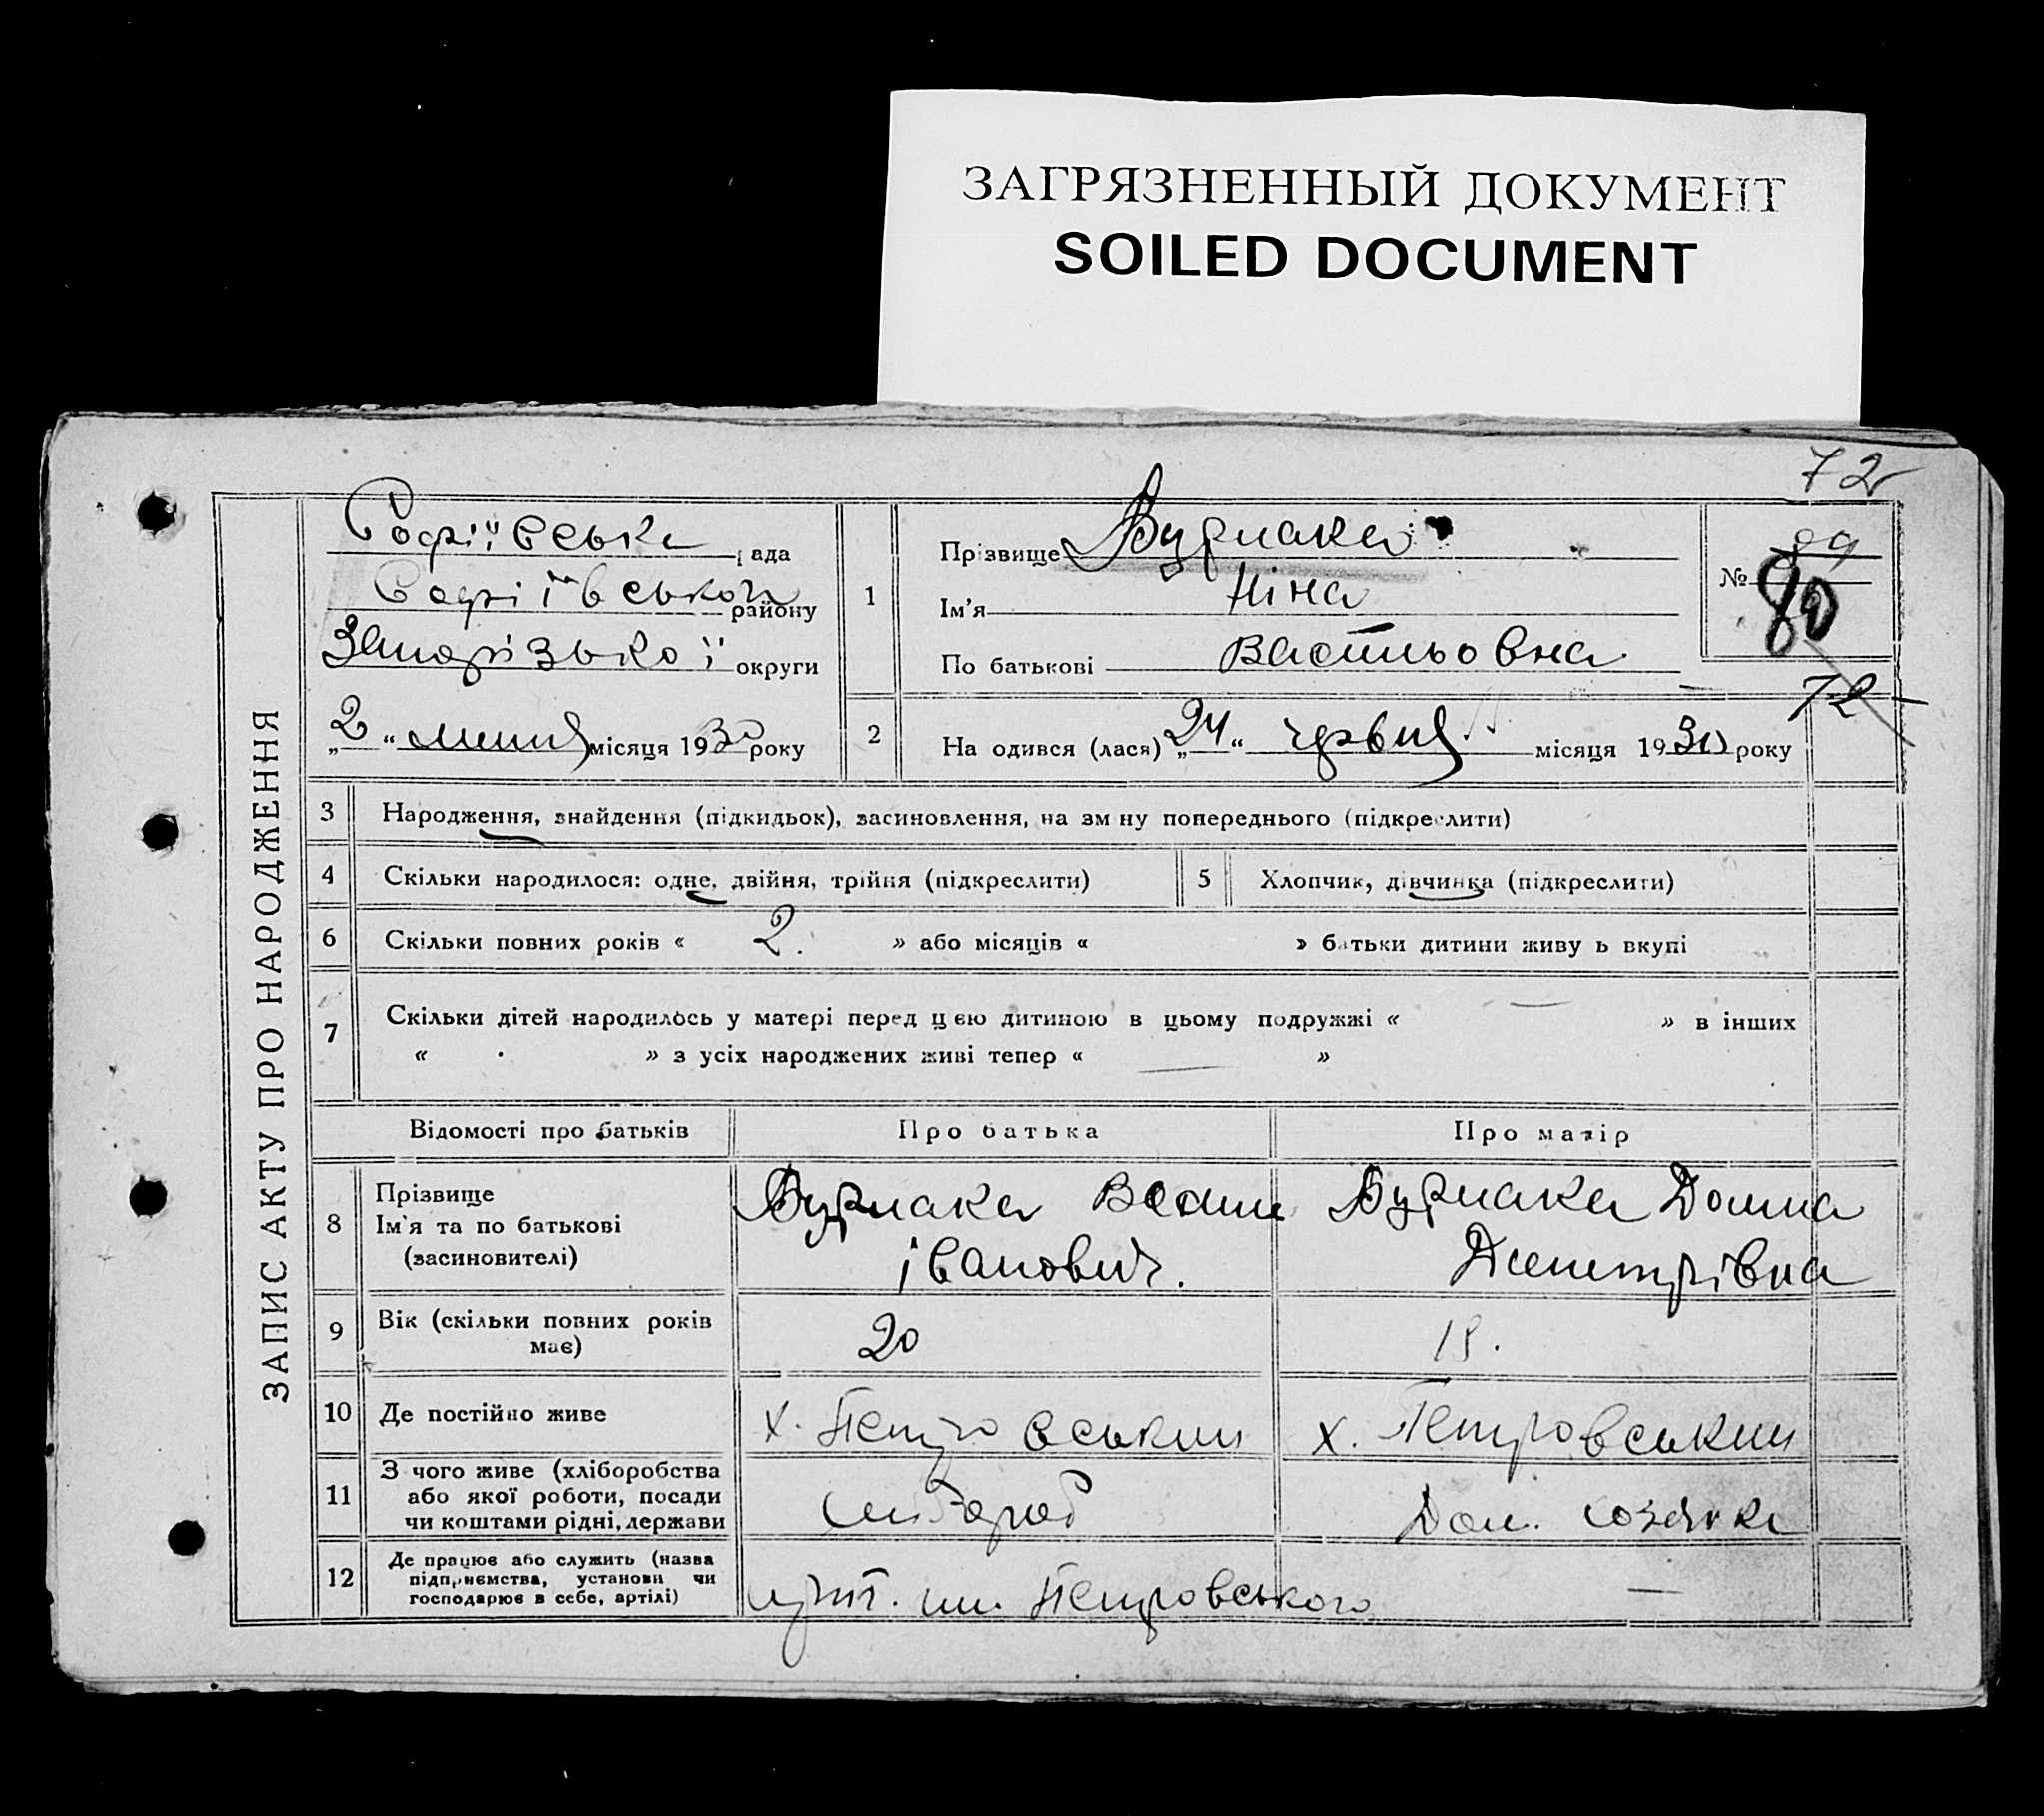 ЗАГРЯЗНЕННЫЙ ДОКУМЕНТ
SOILED DOCUMENT
72
ЗАПИС АКТУ ПРО НАРОДЖЕННЯ
Софіївська рада
Софіївського району
Запорізької округи
„2“ липня місяця 1930 року
1
Прізвище Бурлака
Ім'я Ніна
По батькові Васильовна
№ 89
80
72
2
На одився (лася) „24“ червня місяця 1930 року
3 Народження, знайдення (підкидьок), засиновлення, на зм ну попереднього (підкреслити)
4 Скільки народилося: одне, двійня, трійня (підкреслити) 5 Хлопчик, дівчинка (підкреслити)
6 Скільки повних років « 2. » або місяців « » батьки дитини живу ь вкупі
7 Скільки дітей народилось у матері перед цією дитиною в цьому подружжі « — » в інших
« » з усіх народжених живі тепер « — »
Відомості про батьків Про батька Про матір
8 Прізвище Ім'я та по батькові (засиновителі)
Бурлака Васил Іванович.
Бурлака Домна Дмитрівна
9 Вік (скільки повних років має) 20 18.
10 Де постійно живе х. Петровський х. Петровський
11 З чого живе (хліборобства або якої роботи, посади чи коштами рідні, держави
хлібороб
Дом. хозяйка
12 Де працює або служить (назва підприємства, установи чи господарює в себе, артілі)
арт. им. Петровського —